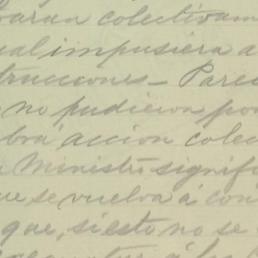 varan colectivam
ual impusiera a
trucciones - Parec
no pudieron por
bra accion colec
Ministro signifi
ue se vuelva á con
que, si esto no se